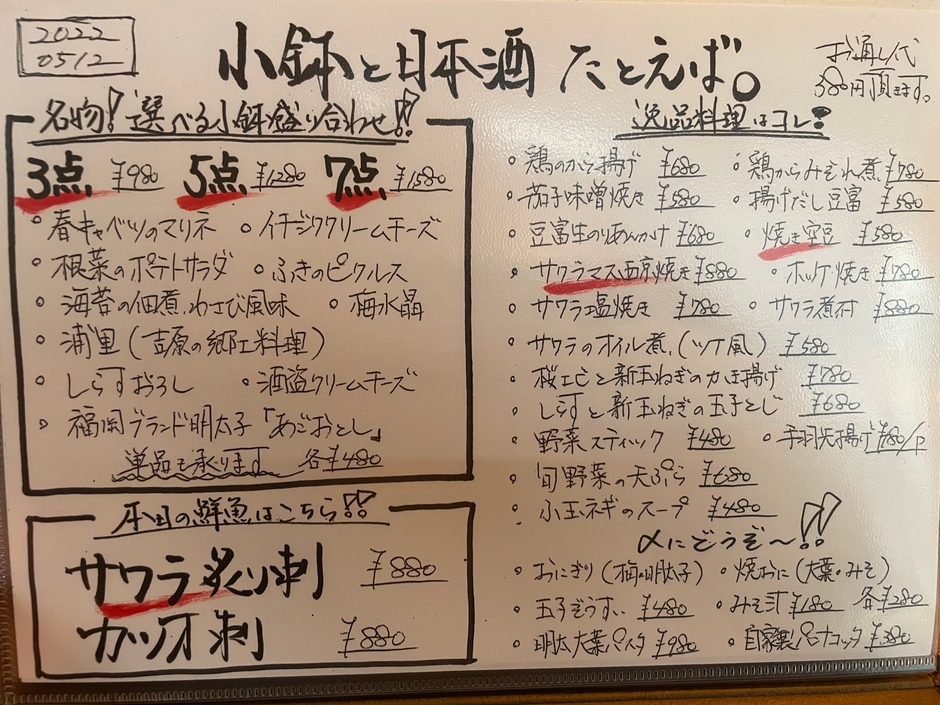 2022
0512
小鉢と日本酒 たとえば。
お通し代
380円頂きます。
名物!選べる小鉢盛り合わせ!!
3点 ¥980 5点 ¥1280 7点 ¥1580
・春キャベツのマリネ ・イチジククリームチーズ
・根菜のポテトサラダ ・ふきのピクルス
・海苔の佃煮.わさび風味 ・梅水晶
・浦里(吉原の郷土料理)
・しらすおろし ・酒盗クリームチーズ
・福岡ブランド明太子「あごおとし」
単品も承ります 各¥480
本日の鮮魚はこちら!!
サワラ炙り刺 ¥880
カツオ刺 ¥880
逸品料理はコレ!
・鶏のから揚げ ¥680 ・鶏からみぞれ煮 ¥780
・茄子味噌焼き ¥580 ・揚げだし豆富 ¥580
・豆富生のりあんかけ ¥680 ・焼き空豆 ¥580
・サクラマス西京焼き ¥880 ・ホッケ焼き ¥780
・サワラ塩焼き ¥780 ・サワラ煮付 ¥880
・サワラのオイル煮.(ツナ風) ¥580
・桜エビと新玉ねぎのかき揚げ ¥780
・しらすと新玉ねぎの玉子とじ ¥680
・野菜スティック ¥480 ・手羽先揚げ ¥180/P
・旬野菜の天ぷら ¥680
・小玉ネギのスープ ¥480
〆にどうぞ〜!!
・おにぎり(梅・明太子) ・焼おに(大葉・みそ)
・玉子ぞうすい ¥480 ・みそ汁 ¥180 各¥280
・明太大葉パスタ ¥980 ・自家製パンナコッタ ¥380